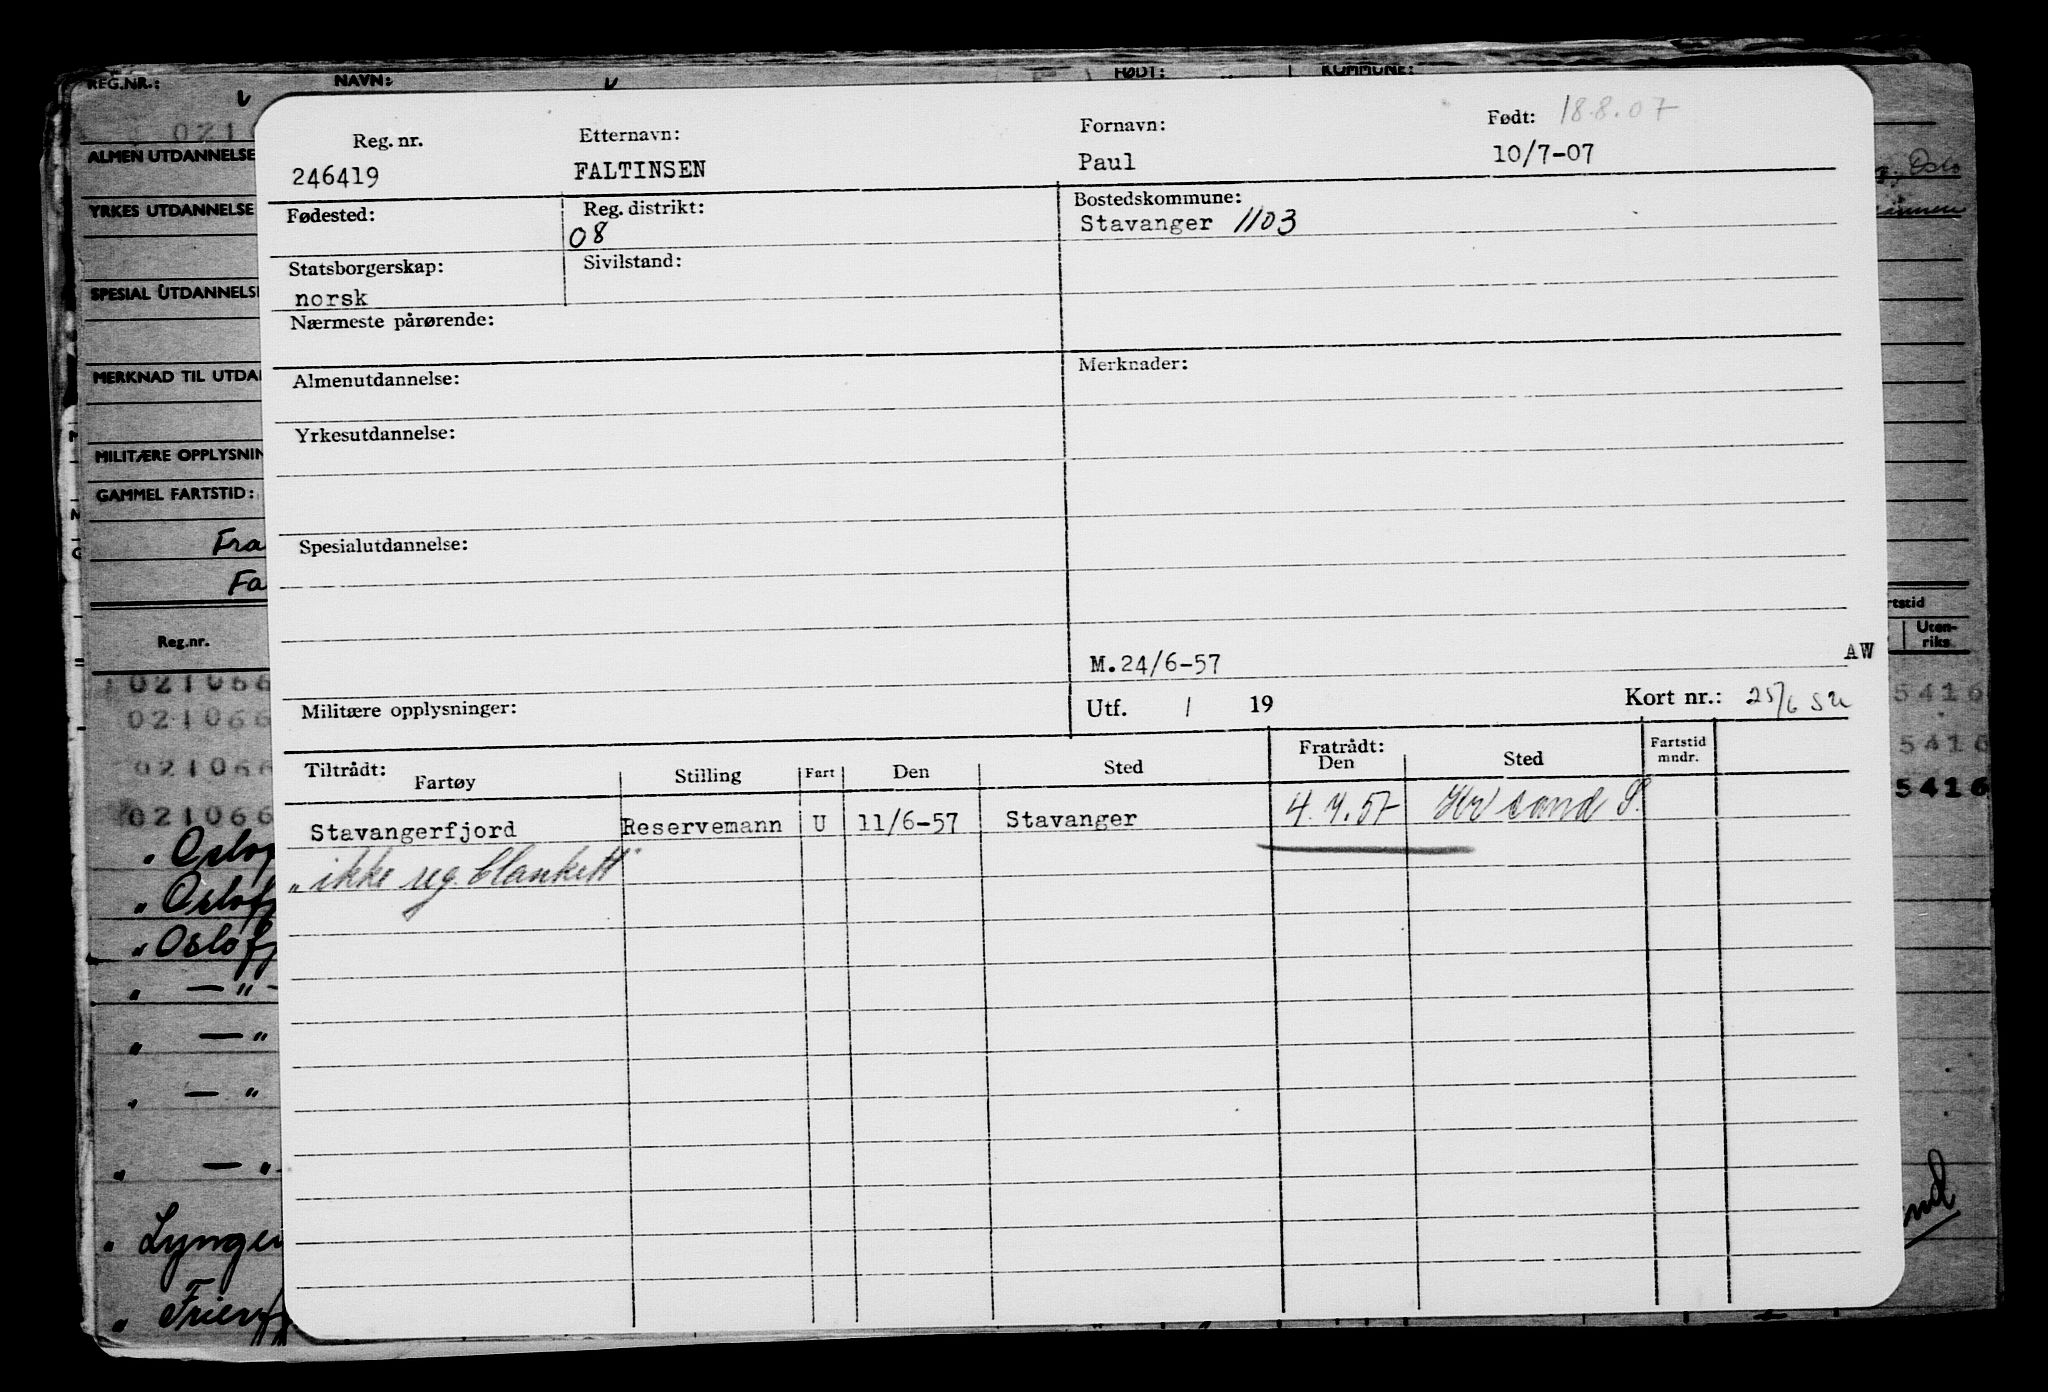 REG.NR.: NAVN: FØDT: KOMMUNE:
0210
ALMEN UTDANNELSE
YRKES UTDANNELSE
SPESIAL UTDANNELSE
MERKNAD TIL UTDA
MILITÆRE OPPLYSNIN
GAMMEL FARTSTID:
Fra
Fa
Reg.nr.
021066
021066
021066
021066
" Oslof
" Oslof
" Oslof
" — " —
" — "
" — "
" — "
" Lyngen
" Frierf
Oslo
rtstid
Uten-
riks
5416
5416
5416
Reg. nr. Etternavn: Fornavn: Født: 18.8.07
246419 FALTINSEN Paul 10/7-07
Fødested: Reg. distrikt: Bostedskommune:
08 Stavanger 1103
Statsborgerskap: Sivilstand:
norsk
Nærmeste pårørende:
Almenutdannelse: Merknader:
Yrkesutdannelse:
Spesialutdannelse:
M.24/6-57 AW
Militære opplysninger: Utf. / 19 Kort nr.: 25/6 su
Tiltrådt: Fratrådt:
Fartøy Stilling Fart Den Sted Den Sted Fartstid mndr.
Stavangerfjord Reservemann U 11/6-57 Stavanger 4.7.57 Kr sand S.
"ikke reg. blankett"